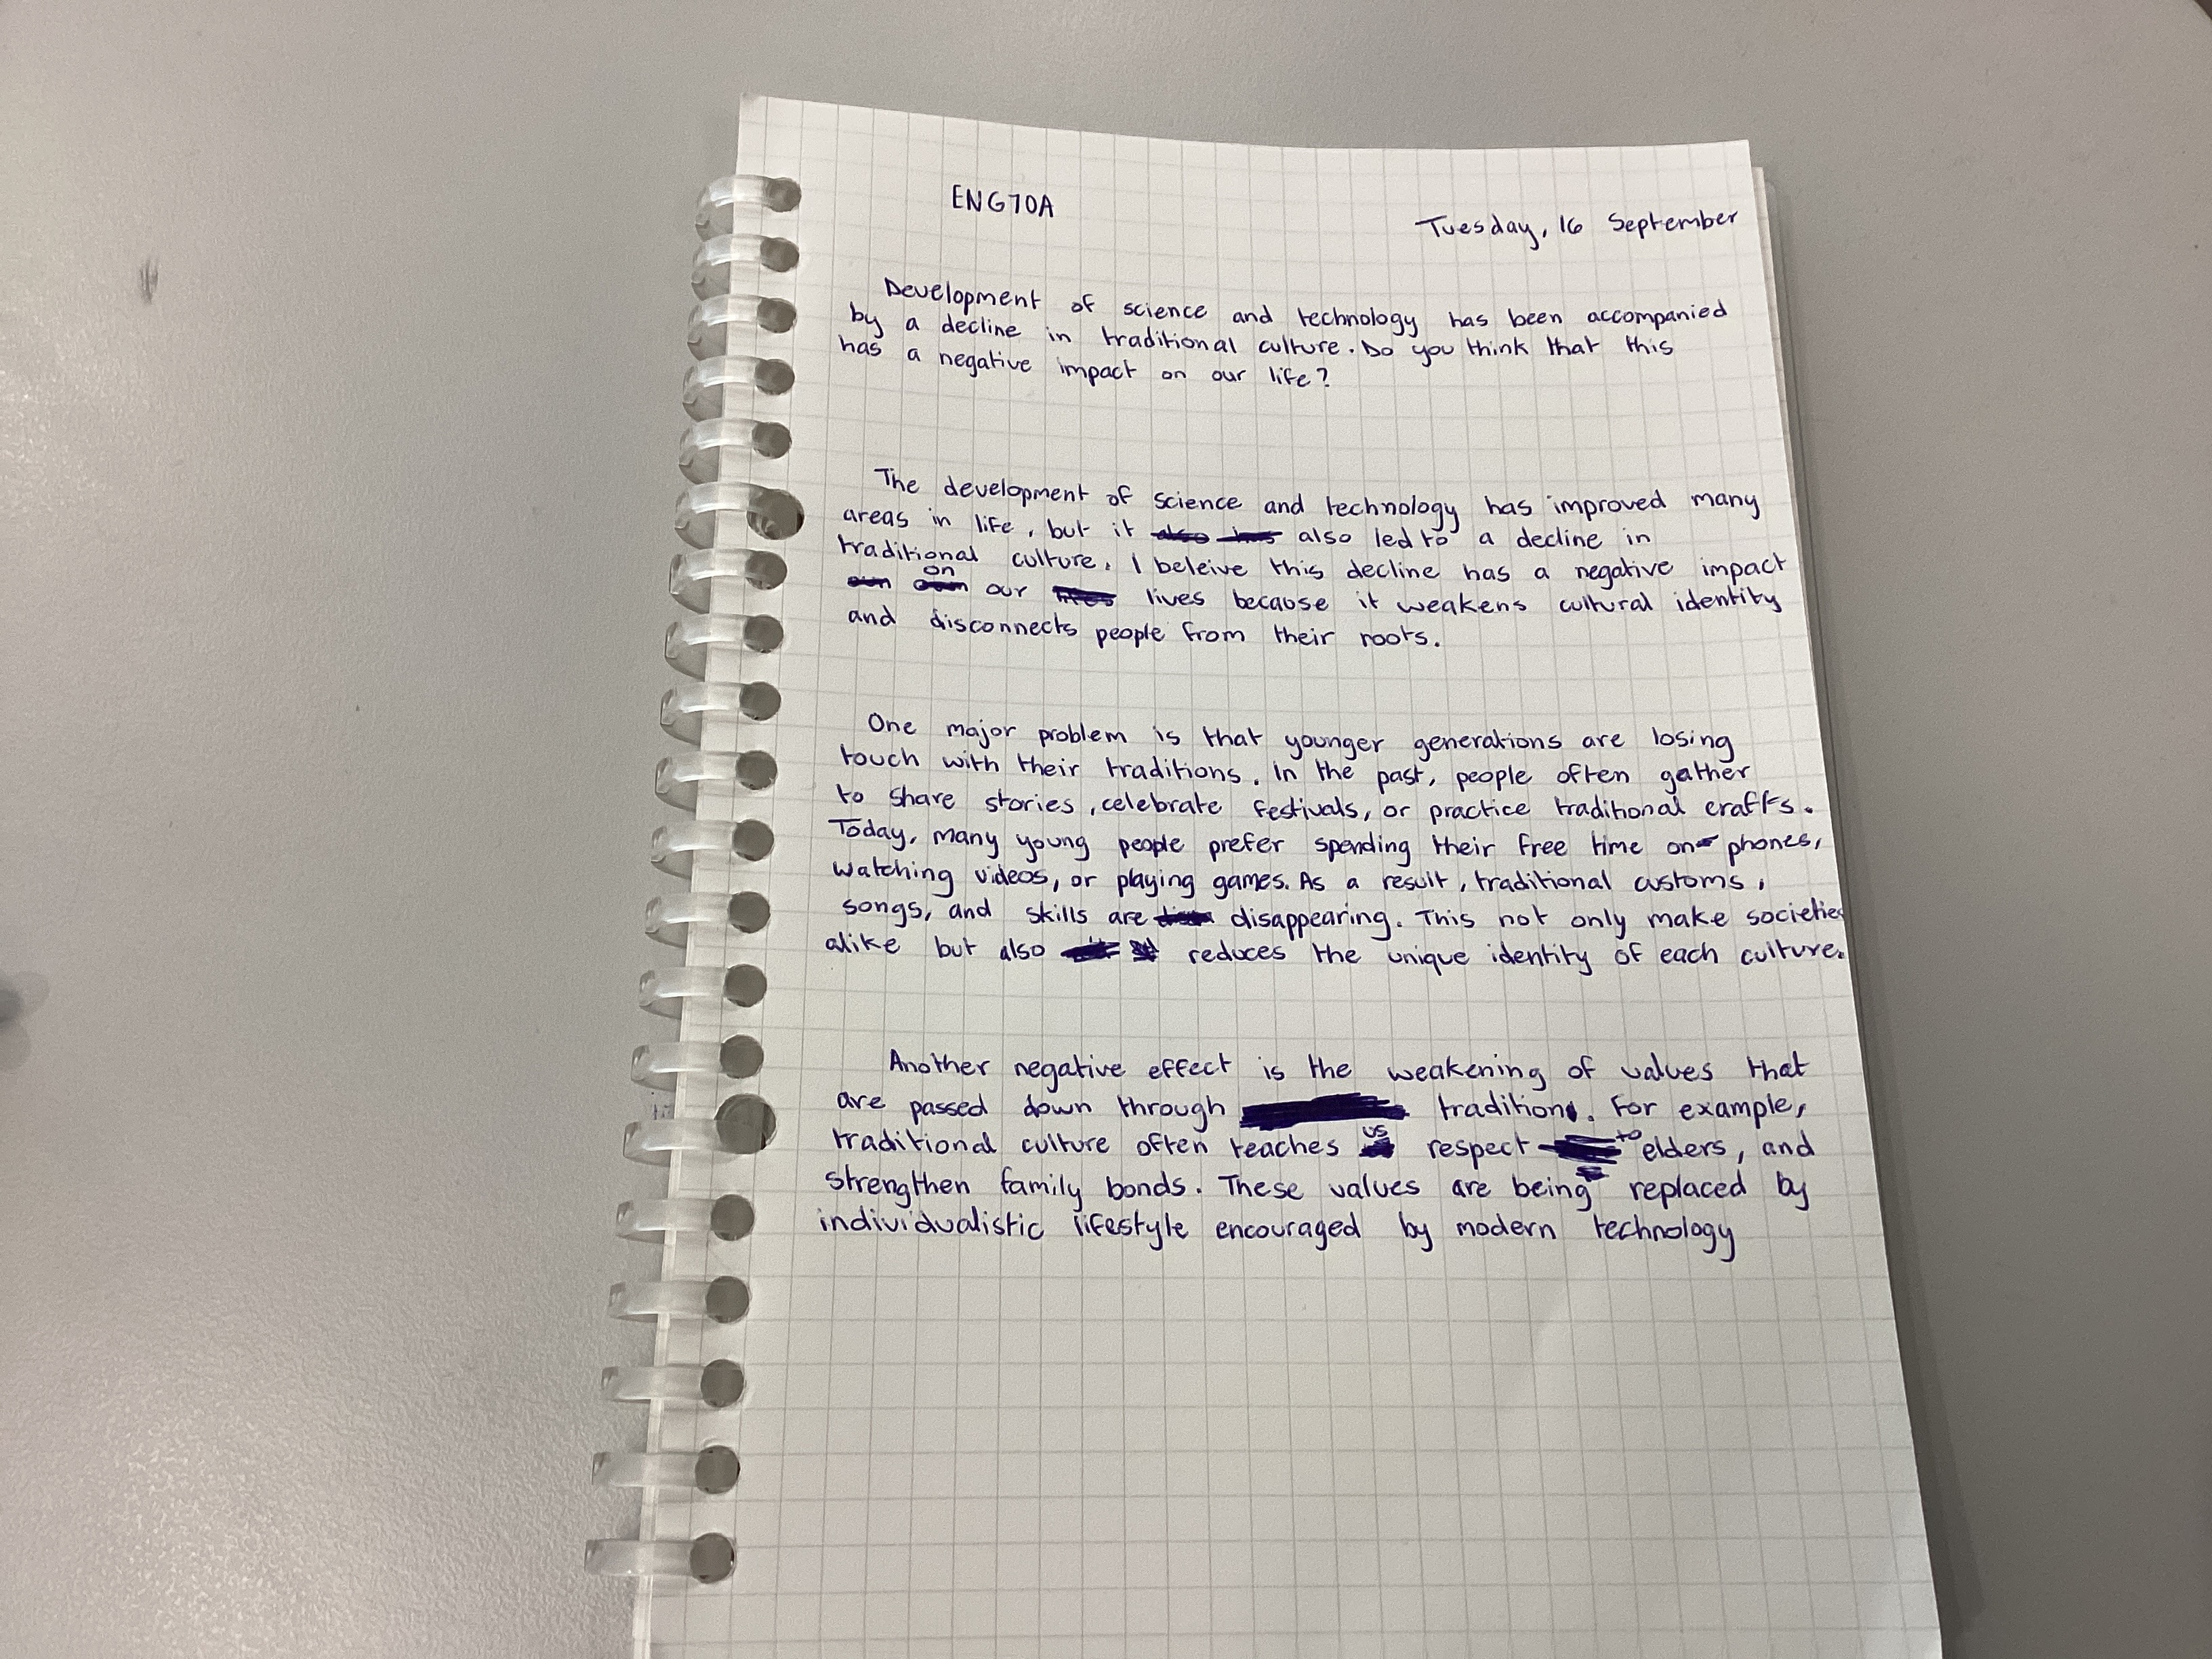 ENG70A
Tuesday, 16 September
Development of science and technology has been accompanied
by a decline in traditional culture. Do you think that this
has a negative impact on our life?
The development of science and technology has improved many
areas in life, but it also led to a decline in
traditional culture. I beleive this decline has a negative impact
on our lives because it weakens cultural identity
and disconnects people from their roots.
One major problem is that younger generations are losing
touch with their traditions. In the past, people often gather
to share stories, celebrate festivals, or practice traditional crafts.
Today, many young people prefer spending their free time on phones,
watching videos, or playing games. As a result, traditional customs,
songs, and skills are disappearing. This not only make societies
alike but also reduces the unique identity of each culture.
Another negative effect is the weakening of values that
are passed down through tradition. For example,
traditional culture often teaches us respect to elders, and
strengthen family bonds. These values are being replaced by
individualistic lifestyle encouraged by modern technology